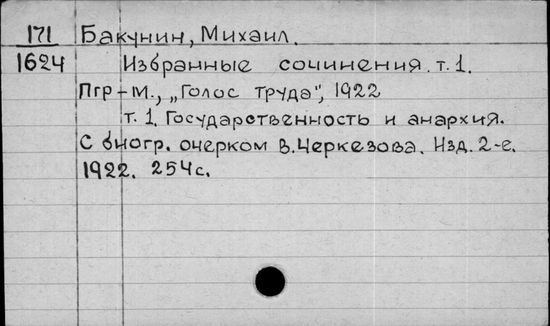 171
1624
Бакунин, Михаил.
Избранные сочинения. т.1.
Пгр-М., „Голос труда", 1922
т.1. Государственность и анархия.
С биогр. очерком В.Черкезова. Изд. 2-е.
1922. 254с.